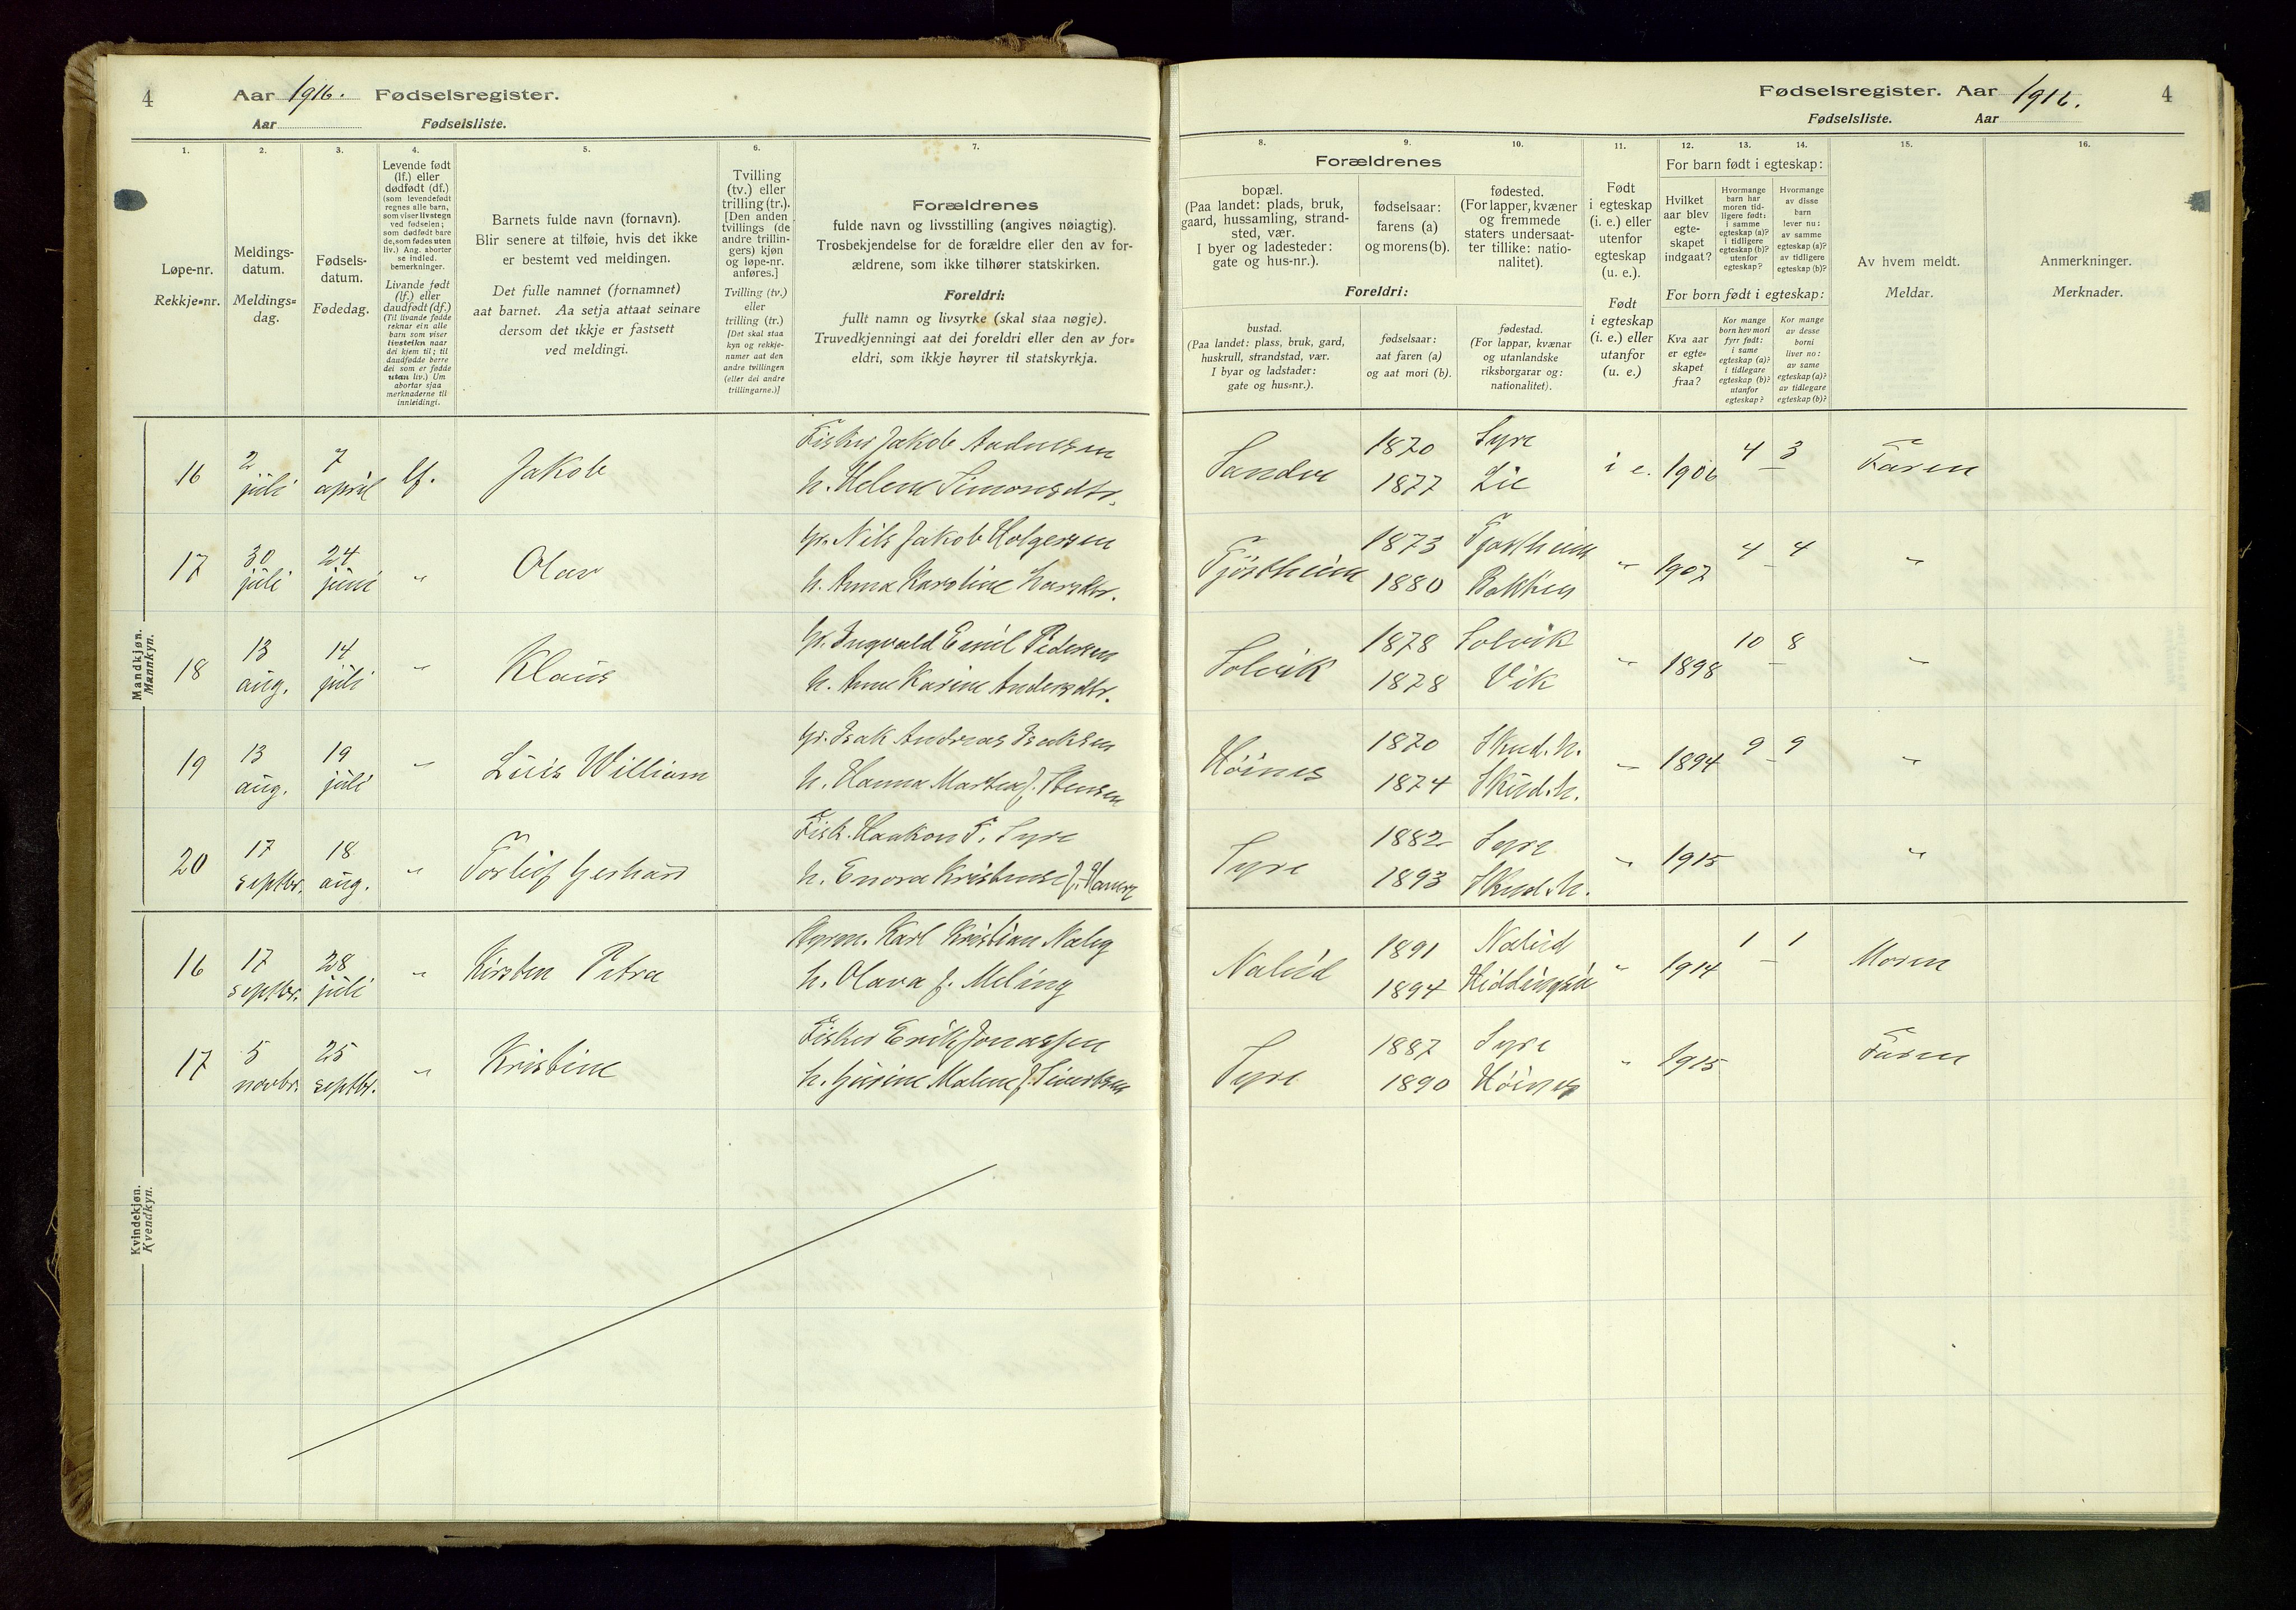 4 Aar 1916. Fødselsregister.
Aar Fødselsliste.
Fødselsregister. Aar 1916. 4
Fødselsliste. Aar
1. 2. 3. 4. 5. 6. 7.
Løpe-nr.
Rekkje-nr.
Meldings-
datum.
Meldings-
dag.
Fødsels-
datum.
Fødedag.
Levende født
(lf.) eller
dødfødt (df.)
(som levendefødt
regnes alle barn,
som viser livstegn
ved fødselen;
som dødfødt bare
de, som fødes uten
liv.) Ang. aborter
se indled.
bemerkninger.
Livande født
(lf.) eller
daudfødt (df.)
(Til livande fødde
reknar ein alle
barn som viser
livsteikn naar
dei kjem til; til
daudfødde berre
dei som er fødde
utan liv.) Um
abortar sjaa
merknaderne til
innleidingi.
Barnets fulde navn (fornavn).
Blir senere at tilføie, hvis det ikke
er bestemt ved meldingen.
Det fulle namnet (fornamnet)
aat barnet. Aa setja attaat seinare
dersom det ikkje er fastsett
ved meldingi.
Tvilling
(tv.) eller
trilling (tr.).
[Den anden
tvillings (de
andre trillin-
gers) kjøn
og løpe-nr.
anføres.]
Tvilling (tv.)
eller
trilling (tr.)
[Det skal staa
kyn og rekkje-
numer aat den
andre tvillingen
(eller dei andre
trillingarne.)]
Forældrenes
fulde navn og livsstilling (angives nøiagtig).
Trosbekjendelse for de forældre eller den av for-
ældrene, som ikke tilhører statskirken.
Foreldri:
fullt namn og livsyrke (skal staa nøgje).
Truvedkjenningi aat dei foreldri eller den av for-
eldri, som ikkje høyrer til statskyrkja.
8. 9. 10. 11. 12. 13. 14. 15. 16.
Forældrenes
bopæl.
(Paa landet: plads, bruk,
gaard, hussamling, strand-
sted, vær.
I byer og ladesteder:
gate og hus-nr.).
fødselsaar:
farens (a)
og morens (b).
fødested.
(For lapper, kvæner
og fremmede
staters undersaat-
ter tillike: natio-
nalitet).
Foreldri:
bustad.
(Paa landet: plass, bruk, gard,
huskrull, strandstad, vær.
I byar og ladstader:
gate og hus-nr.).
fødselsaar:
aat faren (a)
og aat mori (b).
fødestad.
(For lappar, kvænar
og utanlandske
riksborgarar og:
nationalitet).
Født
i egteskap
(i. e.) eller
utenfor
egteskap
(u. e.).
Født
i egteskap
(i. e.) eller
utanfor
(u. e.)
For barn født i egteskap:
Hvilket
aar blev
egte-
skapet
indgaat?
Hvormange
barn har
moren tid-
ligere født:
i samme
egteskap (a)?
i tidligere
egteskap (b)?
utenfor
egteskap?
Hvormange
av disse
barn
lever nu:
av samme
egteskap (a)?
av tidligere
egteskap (b)?
For born født i egteskap:
Kva aar
er egte-
skapet
fraa?
Kor mange
born hev mori
fyrr født:
i same
egteskap (a)?
i tidlegare
egteskap (b)?
utanfor
egteskap?
Kor mange
av desse
borni
liver no:
av same
egteskap (a)?
av tidlegare
egteskap (b)?
Av hvem meldt.
Meldar.
Anmerkninger.
Merknader.
Mandkjøn.
Mannkyn.
16 2 juli 7 april lf. Jakob Fisker Jakob Aadnesen Sandve 1870 Syre i e. 1906 4 3 Faren
h. Helene Simonsdtr. 1877 Lie
17 30 juli 24 juni " Olav Gr. Nils Jakob Holgersen Tjøstheim 1873 Tjøstheim " 1907 4 4 "
h. Anna Karoline Larsdtr. 1880 Bakken
18 13 aug. 14 juli " Klaus Gr. Ingvald Emil Pedersen Solvik 1878 Solvik " 1898 10 8 "
h. Anne Karine Andersdtr. 1878 Vik
19 13 aug. 19 juli " Luis William Gr. Isak Andreas Isaksen Høines 1870 Skud.h. " 1894 9 9 "
h. Hanna Martea f. Stensen 1874 Skud.h.
20 17 septbr. 18 aug. " Torleif Gerhard Fisk. Haakon T. Syre Syre 1882 Syre " 1915 "
h. Enora Kristense f. 1893 Skud.h.
Kvindekjøn.
Kvendkyn.
16 17 septbr. 28 juli " Kirsten Petra Styrm. Karl Kristian Nalug Nalud 1891 Nalud " 1914 1 1 Moren
h. Olava f. Meling 1894
17 5 novbr. 25 septbr. " Kristine Fisker Erik Jonassen Syre 1887 Syre " 1915 Faren
h. Gurine Malene f. Sivertsen 1890 Høines